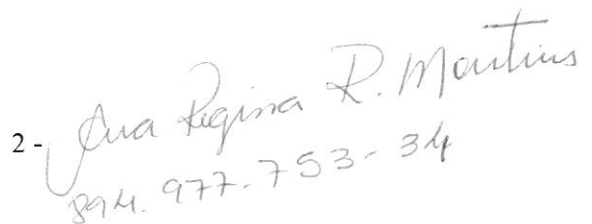 2 - Ana Regina R. Martins
894.977.753-34